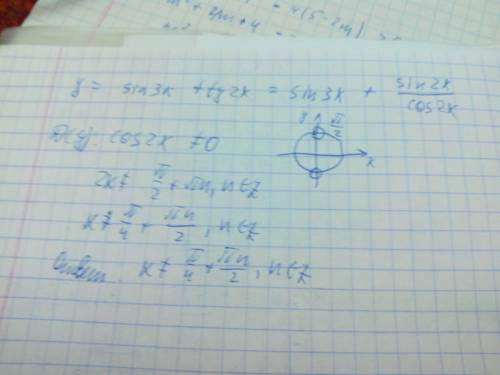 = 4(5-2m)
y = sin3x + tg2x = sin3x + sin2x/cos2x
D(y): cos2x ≠ 0
y π/2
x
2x ≠ π/2 + πn, n∈Z
x ≠ π/4 + πn/2, n∈Z
Ответ: x ≠ π/4 + πn/2, n∈Z